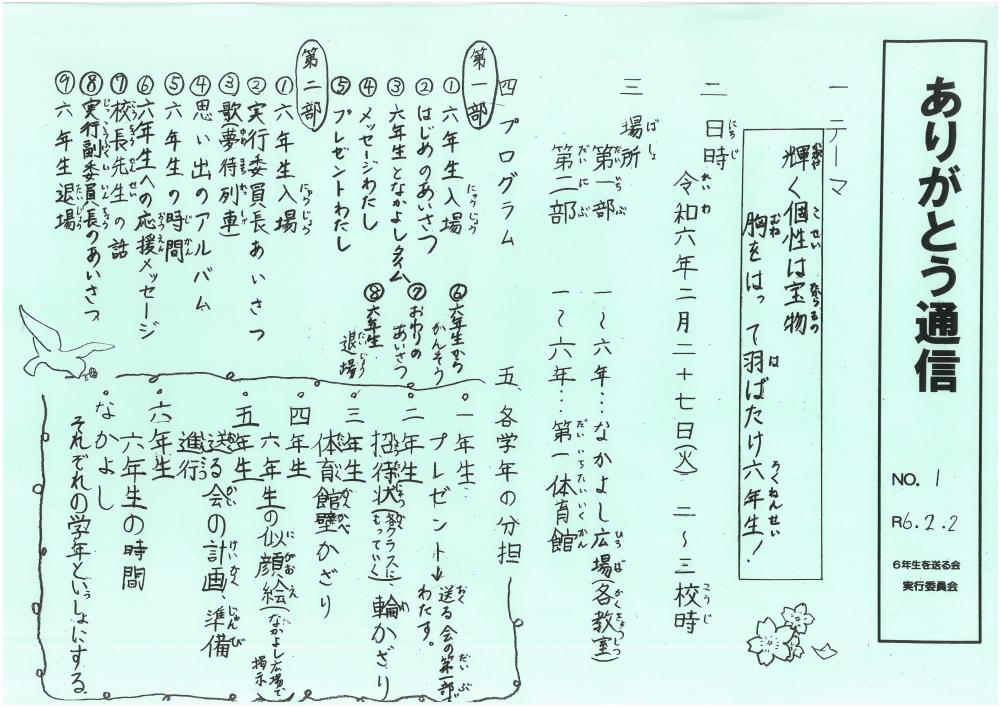 ありがとう通信
NO. 1
R6.2.2
6年生を送る会
実行委員会
一 テーマ
輝く個性は宝物
胸をはって羽ばたけ六年生!
二 日時
令和六年二月二十七日(火) 二～三校時
三 場所
第一部 一～六年…なかよし広場(各教室)
第二部 一～六年…第一体育館
四 プログラム
第一部
①六年生入場
②はじめのあいさつ
③六年生となかよしタイム
④メッセージわたし
⑤プレゼントわたし
⑥六年生からかんそう
⑦おわりのあいさつ
⑧六年生退場
第二部
①六年生入場
②実行委員長あいさつ
③歌(夢待列車)
④思い出のアルバム
⑤六年生の時間
⑥六年生への応援メッセージ
⑦校長先生の話
⑧実行副委員長のあいさつ
⑨六年生退場
五、各学年の分担
・一年生
プレゼント→送る会の第一部でわたす。
・二年生
招待状(各クラスにもっていく)輪かざり
・三年生
体育館壁かざり
・四年生
六年生の似顔絵(なかよし広場で掲示
・五年生
送る会の計画、準備
進行
・六年生
六年生の時間
・なかよし
それぞれの学年といっしょにする。